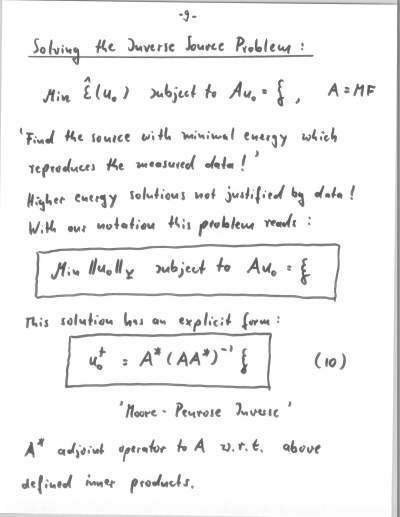 -9-
Solving the Inverse Source Problem :
Min Ê(u₀) subject to Au₀ = ξ , A = MF
'Find the source with minimal energy which
reproduces the measured data ! '
Higher energy solutions not justified by data !
With our notation this problem reads :
Min ||u₀||_Y subject to Au₀ = ξ
This solution has an explicit form :
u₀⁺ = A* (AA*)⁻¹ ξ (10)
'Moore - Penrose Inverse '
A* adjoint operator to A w.r.t. above
defined inner products.